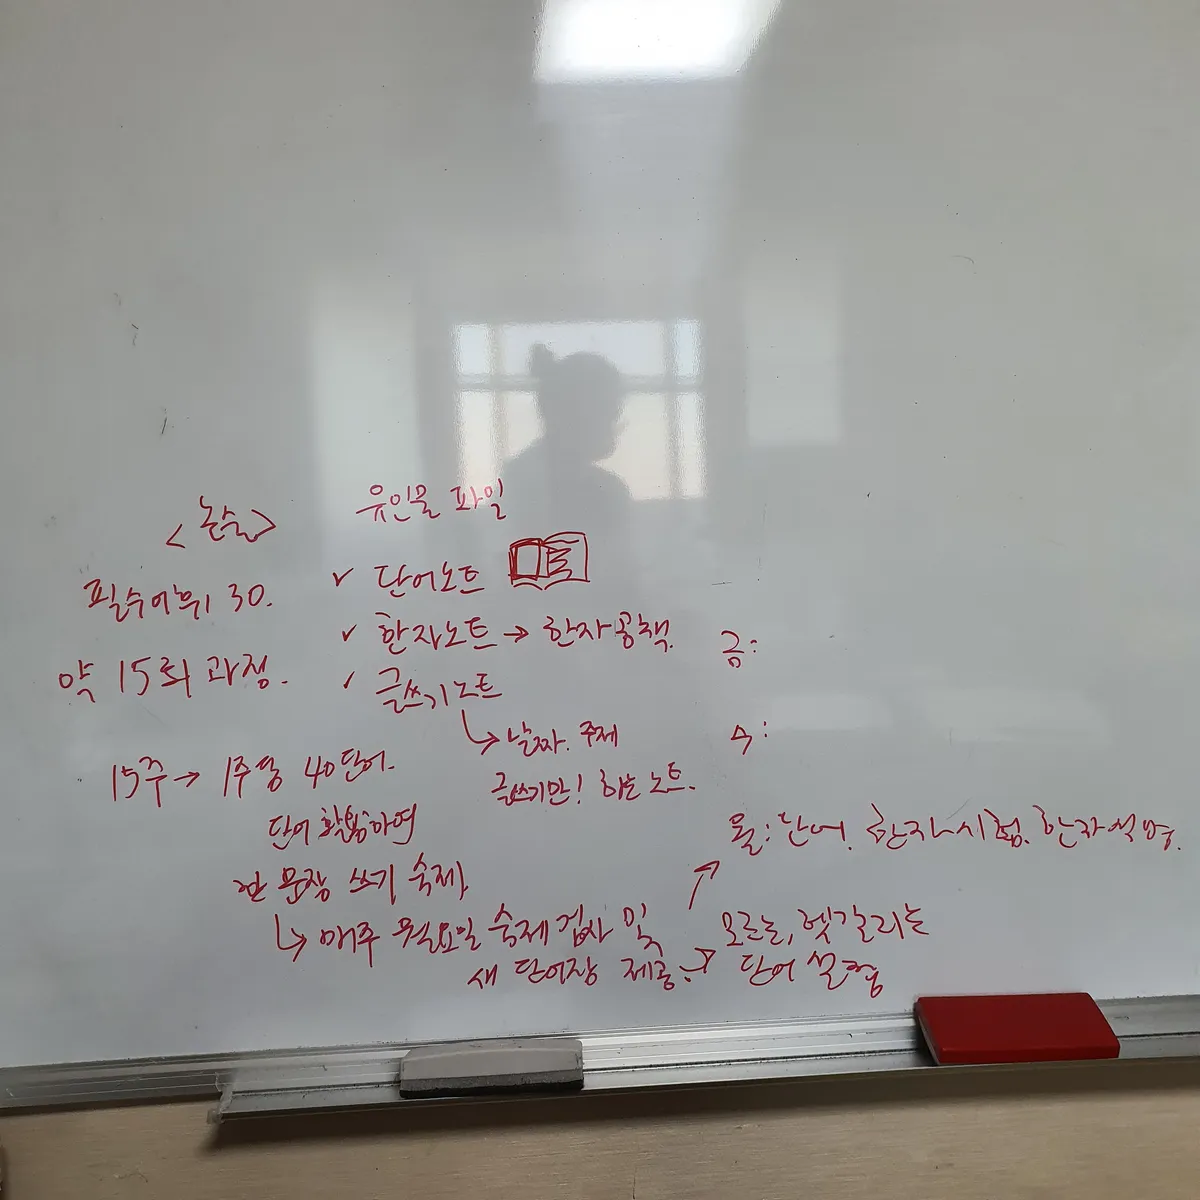 <논술>
필수어휘 30.
약 15회 과정.
15주 → 1주당 40단어.
단어 활용하여
한 문장 쓰기 숙제
↳ 매주 월요일 숙제 검사 및
새 단어장 제공
유인물 파일
✓ 단어노트
✓ 한자노트 → 한자공책
✓ 글쓰기노트
↳ 날짜. 주제
글쓰기만! 하는 노트.
금:
수:
월: 단어. 한자시험. 한자설명.
모르는, 헷갈리는
단어 설명